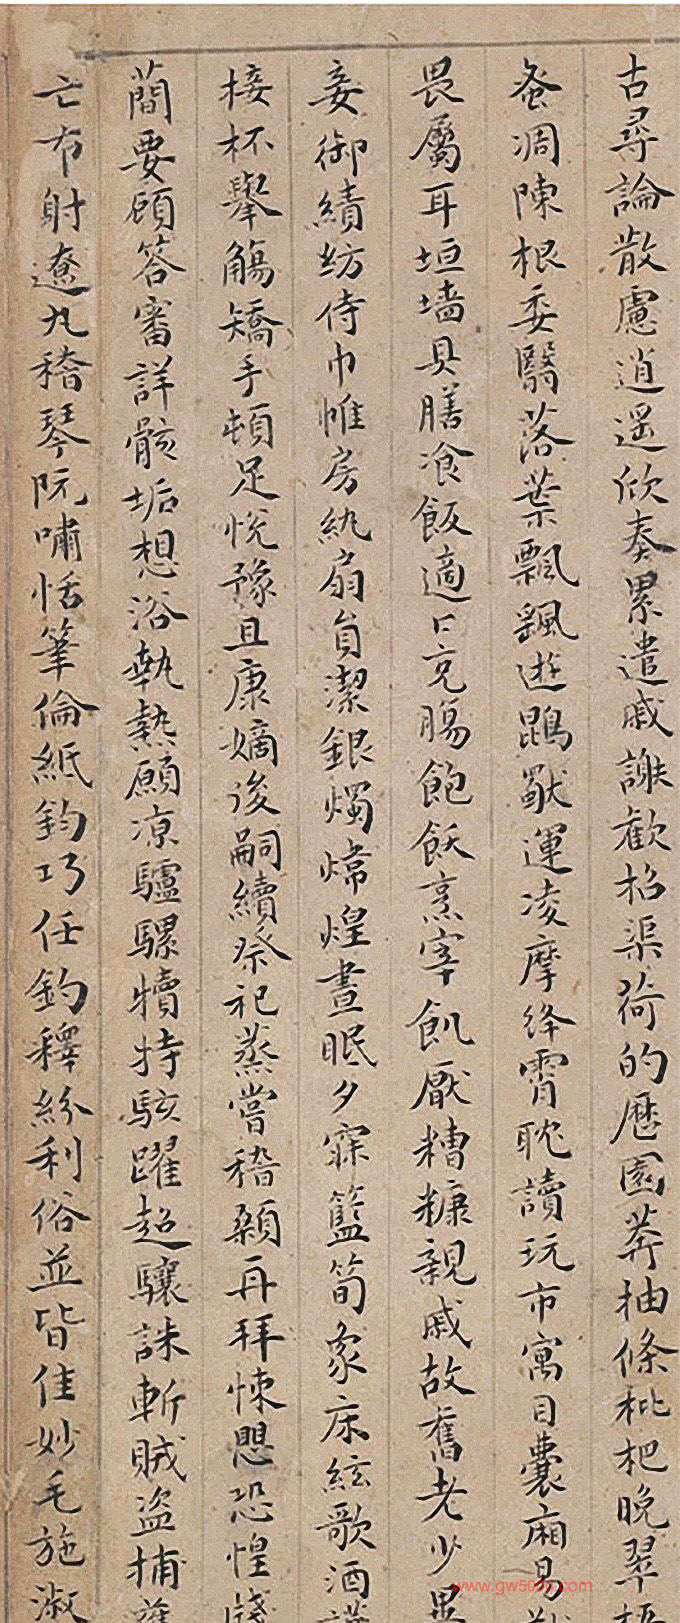 古尋論散慮逍遥欣奏累遣慼謝歡招渠荷的歷園莽抽條枇杷晚翠梧
蚤凋陳根委翳落葉飄颻遊鵾獸運凌摩絳霄耽讀玩市寓目囊廂易
畏屬耳垣墻具膳飡飯適口充腸飽飫烹宰飢厭糟糠親戚故舊老少異
妾御績紡侍巾帷房紈扇員潔銀燭煒煌晝眠夕寐籃筍象床絃歌酒讌
接杯舉觴矯手頓足悅豫且康嫡後嗣續祭祀蒸嘗稽顙再拜悚懼恐惶牋
蕳要顧答審詳骸垢想浴執熱願凉驢騾犢特駭躍超驤誅斬賊盗捕獲
亡布射遼丸嵇琴阮嘯恬筆倫紙鈞巧任釣釋紛利俗並皆佳妙毛施淑
www.gw500p.com